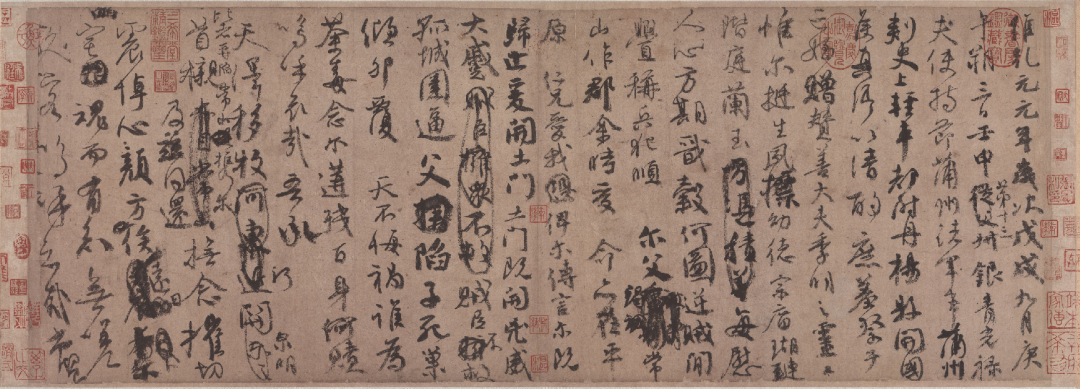 維乾元元年歲次戊戌九月庚
午朔三日壬申第十三從父叔銀青光祿
夫使持節蒲州諸軍事蒲州
刺史上輕車都尉丹楊縣開國
侯真卿以清酌庶羞祭于
亡姪贈贊善大夫季明之靈曰
惟爾挺生夙標幼德宗廟瑚璉
階庭蘭玉方憑積善每慰
人心方期戩穀何圖逆賊閒
釁稱兵犯順爾父竭誠常
山作郡余時受命亦在平
原仁兄愛我恐俾爾傳言爾既
歸止爰開土門土門既開兇威
大蹙賊臣擁眾不救賊臣不救
孤城圍逼父陷子死巢
傾卵覆天不悔禍誰為
荼毒念爾遘殘百身何贖
嗚乎哀哉吾承
天澤移牧河關泉明
比者再陷常山攜爾
首櫬及茲同還撫念摧切
震悼心顏方俟遠日
爾幽宅魂而有知無嗟
久客嗚呼哀哉尚饗